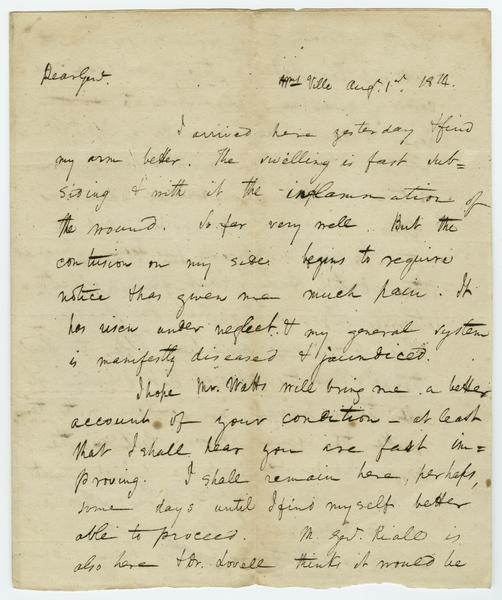 Dear Genl. Wms Ville Augt. 1st. 1814.
I arrived here yesterday & find
my arm better. The swelling is fast sub=
siding & with it the inflammation of
the wound. So far very well. But the
contusion on my side begins to require
notice & has given me much pain. It
has risen under neglect & my general system
is manifestly diseased & jaundiced.
I hope Mr. Watts will bring me a better
account of your condition – at least
that I shall hear you are fast im=
proving. I shall remain here, perhaps,
some days until I find myself better
able to proceed. M. Genl. Riall is
also here & Dr. Lovell thinks it would be